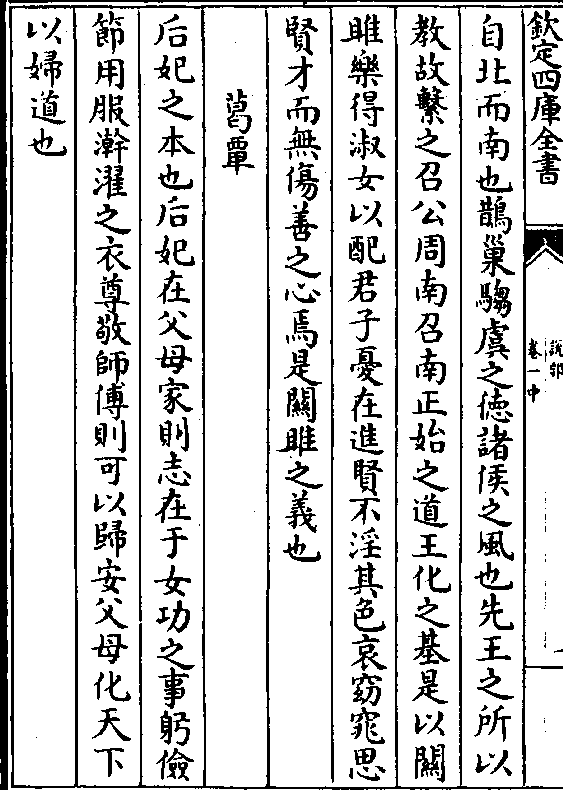 欽定四庫全書
說郛
卷一中
自北而南也鵲巢騶虞之德諸侯之風也先王之所以
教故繫之召公周南召南正始之道王化之基是以關
雎樂得淑女以配君子憂在進賢不淫其色哀窈窕思
賢才而無傷善之心焉是關雎之義也
葛覃
后妃之本也后妃在父母家則志在于女功之事躬儉
節用服澣濯之衣尊敬師傅則可以歸安父母化天下
以婦道也